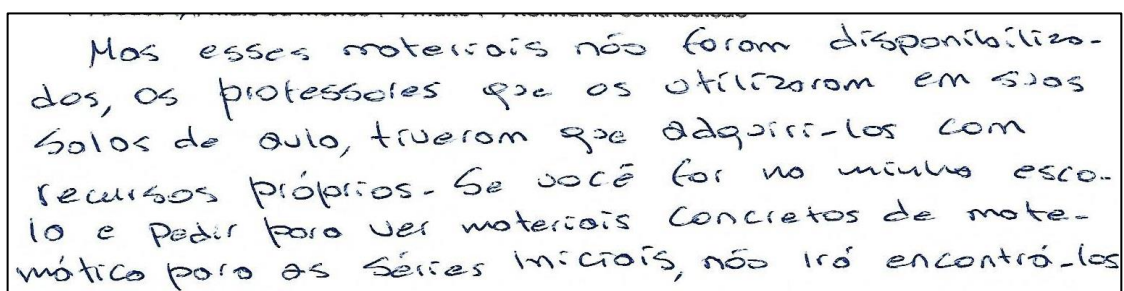 Mas esses materiais não foram disponibiliza-
dos, os professores que os utilizaram em suas
salas de aula, tiveram que adquiri-los com
recursos próprios. Se você for na minha esco-
la e pedir para ver materiais concretos de mate-
mática para as séries iniciais, não irá encontrá-los